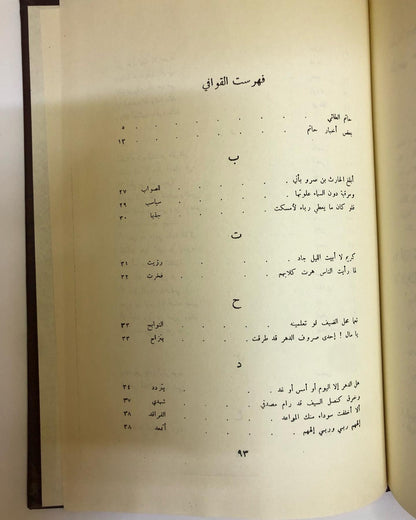 فهرست القوافي
حاتم الطائي . . . . . . . ٥
بعض أخبار حاتم . . . . . . ١٣
ب
أبلغ الحارث بن عمرو بأني . . . . للصواب ٢٧
ومرقبة دون السماء علوتها . . . . سباسب ٢٩
فلو كان ما يعطي رياء لأمسكت . . . جذبا ٣٠
ت
كريم لا أبيت الليل جاد . . . . رزيت ٣١
لما رأيت الناس هرت كلابهم . . . . فخرت ٣٢
ح
نعما محل الضيف لو تعلمينه . . . . النوابح ٣٣
يا مال ! إحدى صروف الدهر قد طرقت . . . بنزاح ٣٣
د
هل الدهر إلا اليوم أو أمس أو غد . . . يتردد ٣٤
وخرق كنصل السيف قد رام مصدفي . . . شهدي ٣٧
ألا أخلفت سوداء منك المواعد . . . الفراقد ٣٨
إلههم ربي وربي إلههم . . . . أتمعدد ٣٨
٩٣